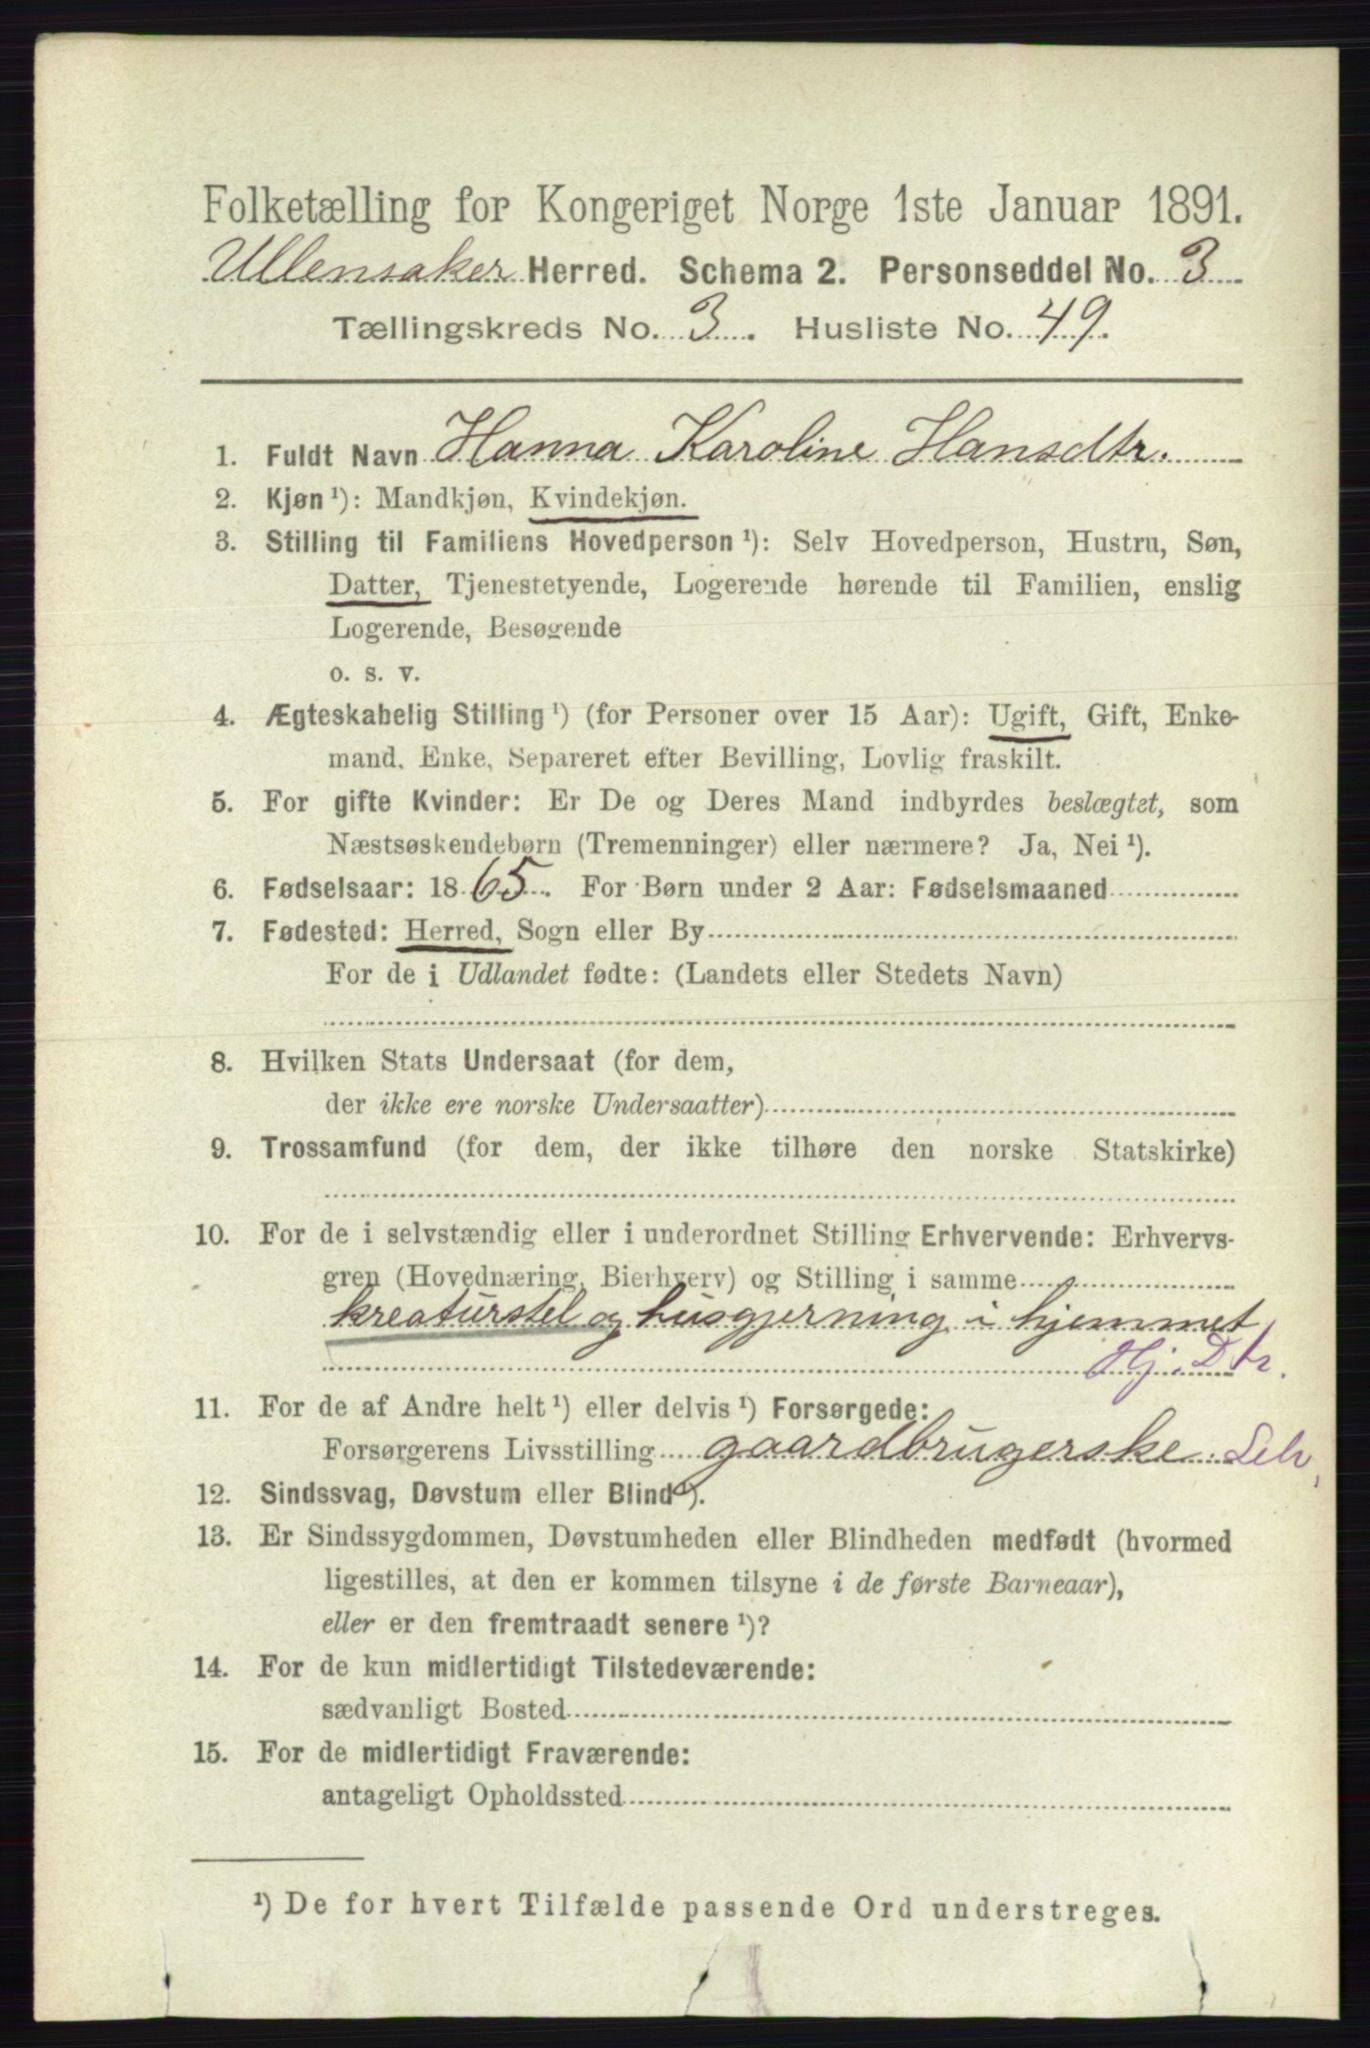 Folketælling for Kongeriget Norge 1ste Januar 1891.
Ullensaker Herred. Schema 2. Personseddel No. 3
Tællingskreds No. 3. Husliste No. 49.
1. Fuldt Navn Hanna Karoline Hansdtr.
2. Kjøn ¹): Mandkjøn, Kvindekjøn.
3. Stilling til Familiens Hovedperson ¹): Selv Hovedperson, Hustru, Søn,
Datter, Tjenestetyende, Logerende hørende til Familien, enslig
Logerende, Besøgende
o. s. v.
4. Ægteskabelig Stilling ¹) (for Personer over 15 Aar): Ugift, Gift, Enke-
mand, Enke, Separeret efter Bevilling, Lovlig fraskilt.
5. For gifte Kvinder: Er De og Deres Mand indbyrdes beslægtet, som
Næstsøskendebørn (Tremenninger) eller nærmere? Ja, Nei ¹).
6. Fødselsaar: 1865. For Børn under 2 Aar: Fødselsmaaned
7. Fødested: Herred, Sogn eller By
For de i Udlandet fødte: (Landets eller Stedets Navn)
8. Hvilken Stats Undersaat (for dem,
der ikke ere norske Undersaatter)
9. Trossamfund (for dem, der ikke tilhøre den norske Statskirke)
10. For de i selvstændig eller i underordnet Stilling Erhvervende: Erhvervs-
gren (Hovednæring, Bierhverv) og Stilling i samme
kreaturstel og husgjerning i hjemmet
Hj. Dtr.
11. For de af Andre helt ¹) eller delvis ¹) Forsørgede:
Forsørgerens Livsstilling gaardbrugerske. Selv,
12. Sindssvag, Døvstum eller Blind ¹).
13. Er Sindssygdommen, Døvstumheden eller Blindheden medfødt (hvormed
ligestilles, at den er kommen tilsyne i de første Barneaar),
eller er den fremtraadt senere ¹)?
14. For de kun midlertidigt Tilstedeværende:
sædvanligt Bosted
15. For de midlertidigt Fraværende:
antageligt Opholdssted
¹) De for hvert Tilfælde passende Ord understreges.